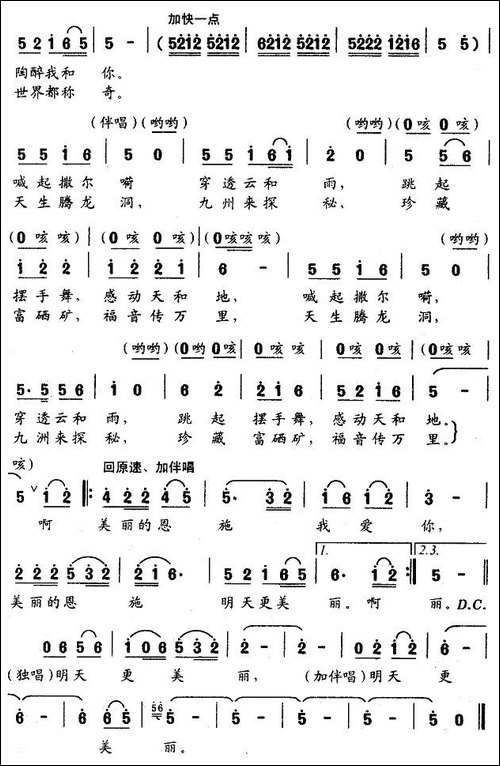 加快一点
5 2 1 6 5 | 5 - | ( 5212 5212 | 6212 5212 | 5222 1216 | 5 5 ) |
陶醉我和 你。
世界都称 奇。
(伴唱) (哟哟) (哟哟) (0 咳 0 咳)
5 5 1 6 | 5 0 | 5 5 1 6 1 | 2 0 | 5 5 6 |
喊起撒尔 嗬, 穿透云和 雨, 跳起
天生腾龙 洞, 九州来探 秘、 珍藏
(0 咳 咳) (0 咳 0 咳) (0咳咳咳) (哟哟)
1 2 2 | 1 2 2 1 | 6 - | 5 5 1 6 | 5 0 |
摆手舞, 感动天和 地, 喊起撒尔 嗬,
富硒矿, 福音传万 里, 天生腾龙 洞,
(哟哟) (0哟 0咳 0咳 0咳 0咳 咳 0咳 咳
5· 5 5 6 | 1 0 | 6 2 | 2 1 6 | 5 2 1 6 | 5 - |
穿透云和 雨, 跳起 摆手舞, 感动天和 地。
九洲来探 秘, 珍藏 富硒矿, 福音传万 里。
咳) 回原速、加伴唱
5 ∨ 1 2 ‖: 4 2 2 4 5 | 5· 3 2 | 1 6 1 2 | 3 - |
啊 美丽的恩 施 我 爱 你,
1. 2.3.
2 2 2 5 3 2 | 2 1 6· | 5 2 1 6 5 | 6· 1 2 :‖ 5 - ‖
美丽的恩 施 明天更美 丽。啊 丽。D.C.
0 6 5 6 | 1 0 6 5 3 2 | 2 - | 2 - | 0 2 1 2 |
(独唱)明天 更 美 丽, (加伴唱)明天 更
6 - | 6 6 5 | 56 5 - | 5 - | 5 - | 5 - | 5 0 ‖
美 丽。